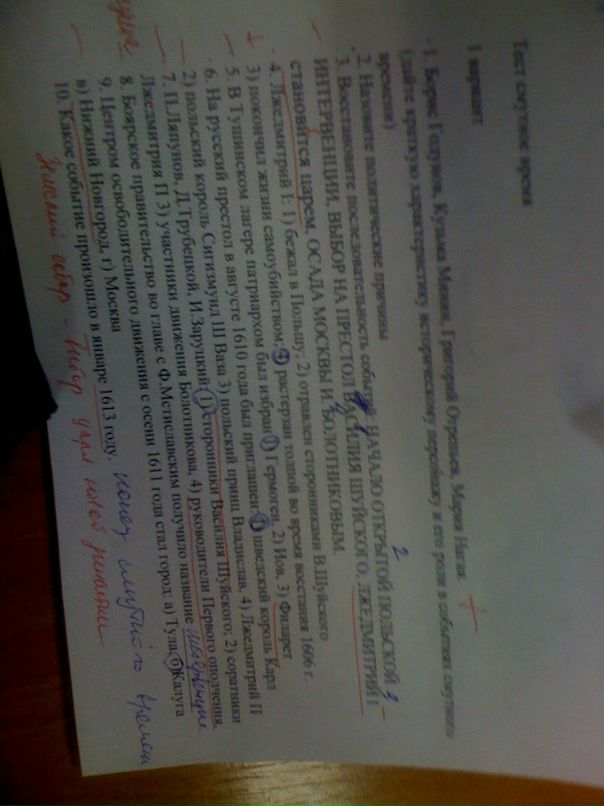 Тест смутное время
1 вариант
1. Борис Годунов, Кузьма Минин, Григорий Отрепьев, Мария Нагая.
(дайте краткую характеристику историческому персонажу и его роли в событиях смутного
времени)
2. Назовите политические причины
3. Восстановите последовательность событий: НАЧАЛО ОТКРЫТОЙ ПОЛЬСКОЙ 3
ИНТЕРВЕНЦИИ, ВЫБОР НА ПРЕСТОЛ ВАСИЛИЯ ШУЙСКОГО, ЛЖЕДМИТРИЙ I
2
становится царем, ОСАДА МОСКВЫ И. БОЛОТНИКОВЫМ.
4. Лжедмитрий I: 1) бежал в Польшу; 2) отравлен сторонниками В.Шуйского
3) покончил жизни самоубийством; 4) растерзан толпой во время восстания 1606 г.
5. В Тушинском лагере патриархом был избран 1) Гермоген, 2) Иов, 3) Филарет
6. На русский престол в августе 1610 года был приглашен: 1) шведский король Карл
2) польский король Сигизмунд III Ваза 3) польский принц Владислав, 4) Лжедмитрий П
7. П.Ляпунов, Д.Трубецкой, И.Заруцкий 1) Сторонники Василия Шуйского; 2) соратники
Лжедмитрия П 3) участники движения Болотникова, 4) руководители Первого ополчения.
8. Боярское правительство во главе с Ф.Мстиславским получило название
9. Центром освободительного движения с осени 1611 года стал город: а) Тула б) Калуга
в) Нижний Новгород, г) Москва
10. Какое событие произошло в январе 1613 году. конец смутного времени
Земский собор - Выбор царя новой династии